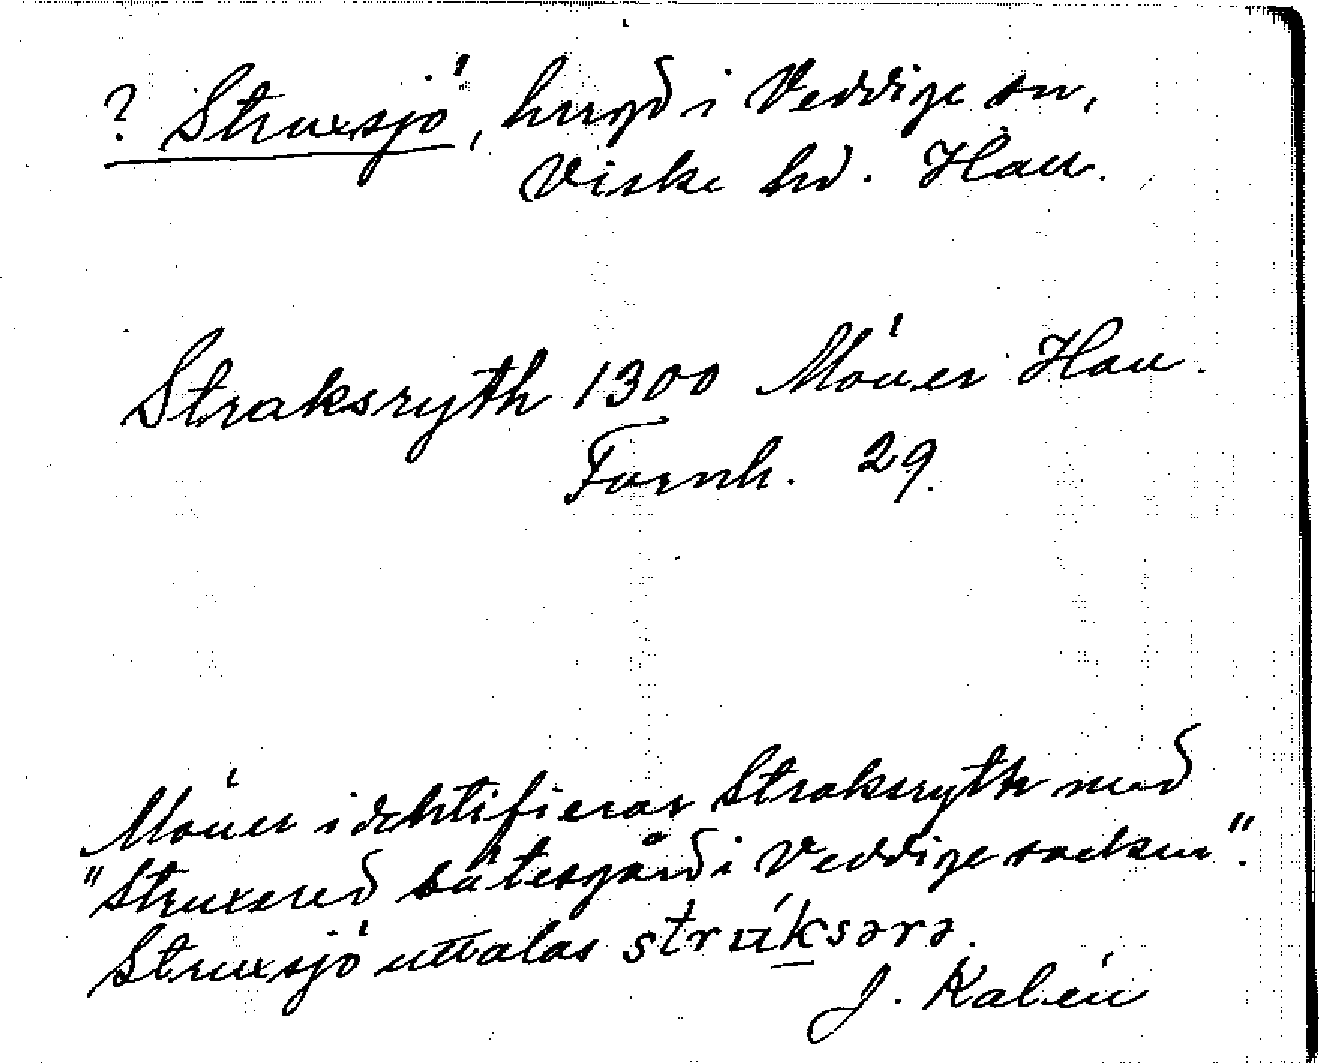 ? Struxsjö, herrgd i Veddige sn,
Viske hd. Hall.
Straksryth 1300 Möller Hall.
Fornh. 29.
Möller identifierar Straksryth med
"Struxered sätesgård i Veddige socken".
Struxsjö uttalas strúksərə.
J. Kalén